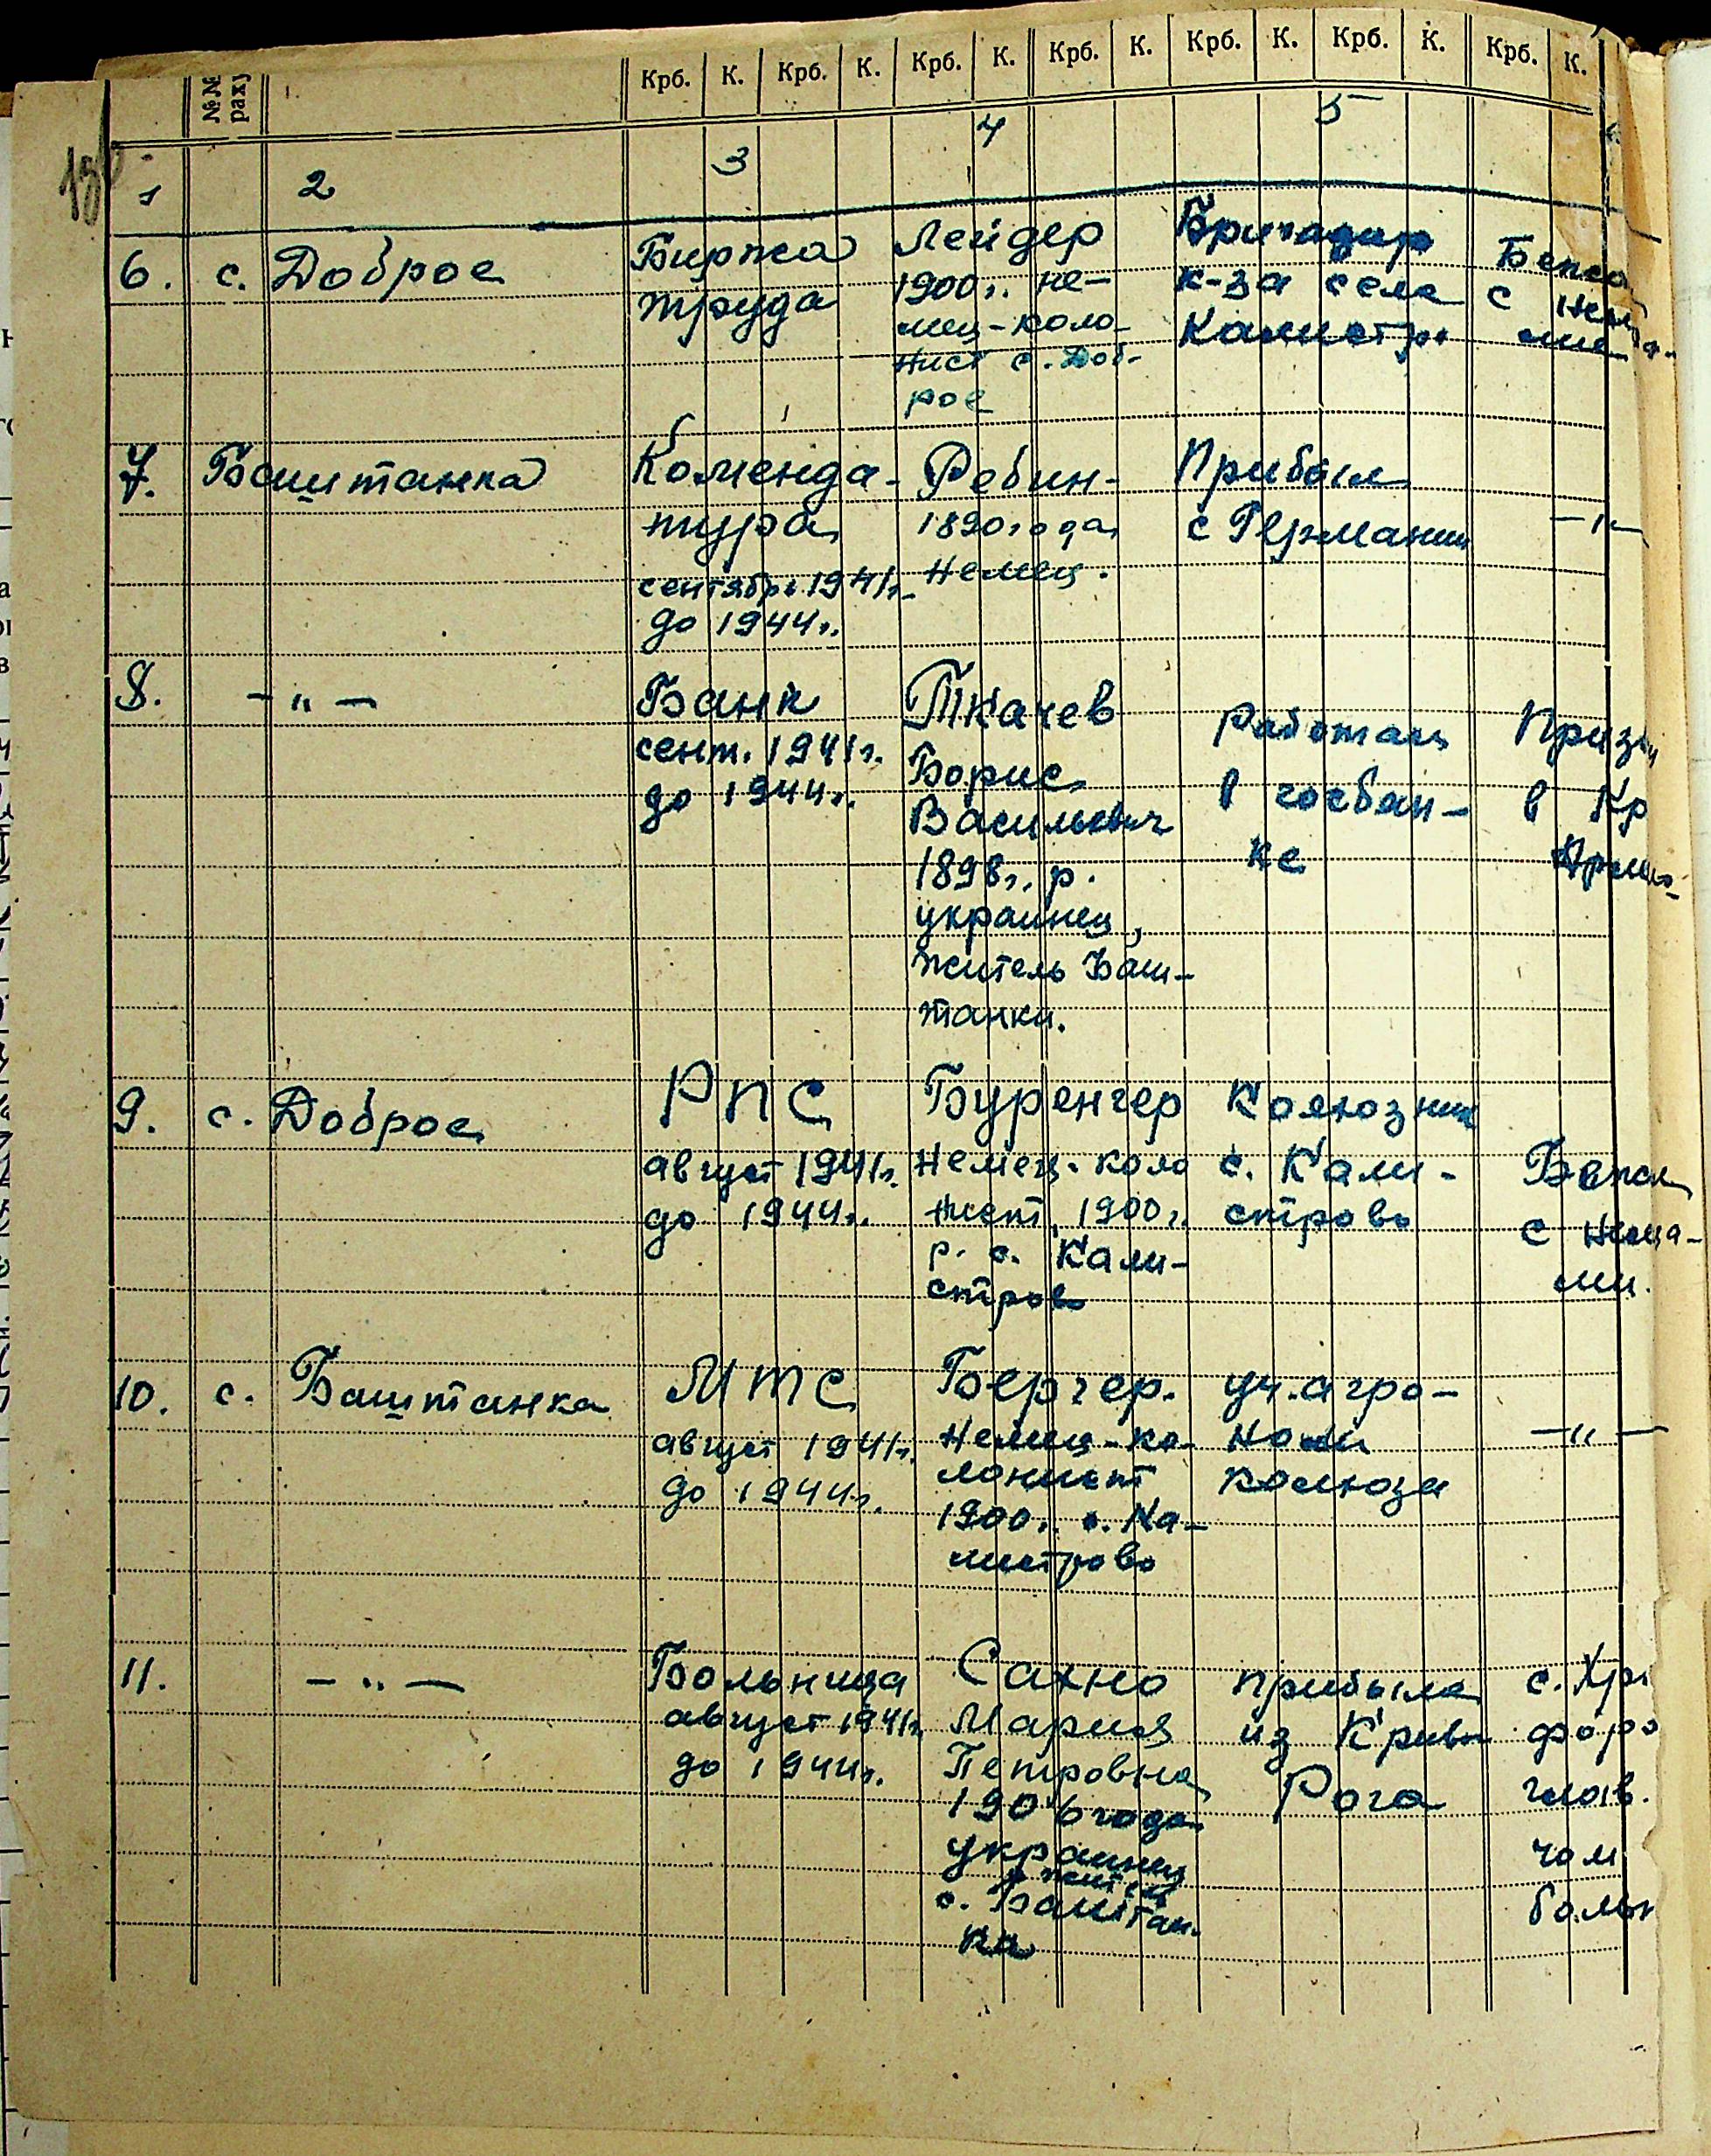 Крб. К. Крб. К. Крб. К. Крб. К. Крб. К. Крб. К. Крб. К.
№№ раху
1 2 3 4 5
6. с. Доброе
Биржа
труда
Лейдер
1900г. не-
мец-коло-
нист с. Доб-
рое
Бригадир
к-за села
Бежа
с нем
7. Баштанка
Коменда-
тура
сентябрь 1941г.
до 1944г.
Ребин-
1890 года
немец.
Прибыл
с Германии
-"-
8. -"-
Банк
сент. 1941г.
до 1944г.
Ткачев
Борис
Васильевич
1898г. р.
украинец,
житель Баш-
танки.
Работал
в госбан-
ке
Призв
в Кр
Армию
9. с. Доброе
РПС
август 1941г.
до 1944г.
Буренгер
немец-коло
нист, 1900г.
р. с. Кали-
строво
Колхозник
с. Кали-
строво
Бежал
с немца-
ми.
10. с. Баштанка
МТС
август 1941г.
до 1944г.
Бергер.
немец-ко-
лонист
1900г. с. Ка-
листрово
уч. агро-
ном
колхоза
-"-
11. -"-
Больница
август 1941г.
до 1944г.
Сахно
Мария
Петровна
1906 года
с. Баштан-
ка
прибыла
из Крив
Рога
с. Хри
форо
глав.
чом
больн